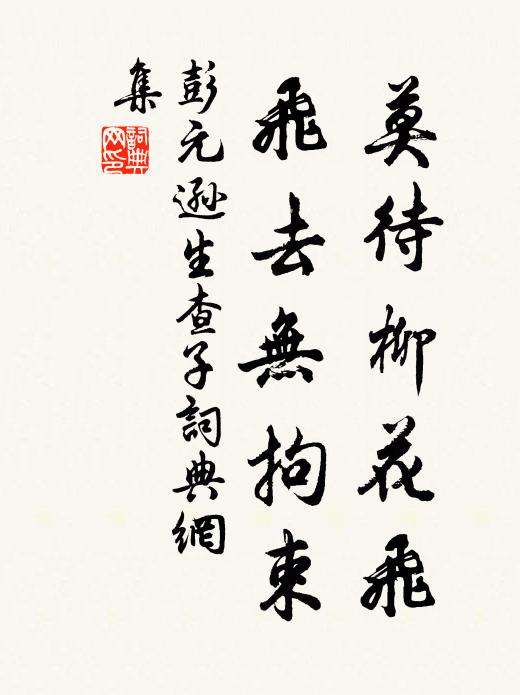 莫待柳花飛
飛去無拘束
彭元遜生查子詞典網
集
詞典
网印